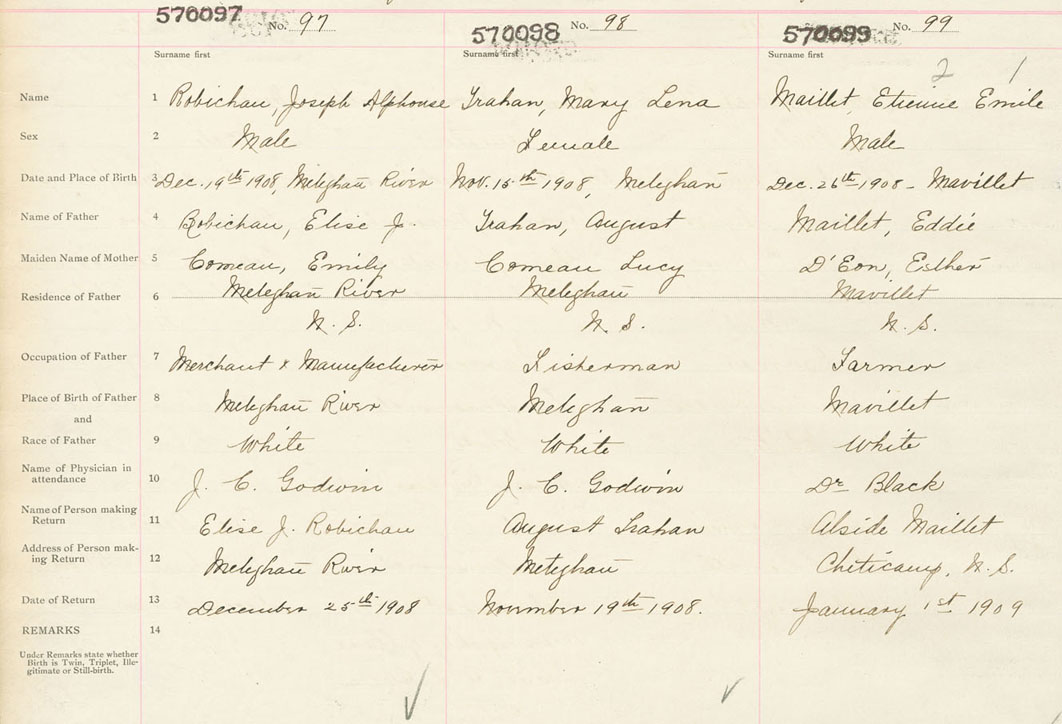 570097 No. 97 570098 No. 98 570099 No. 99
Surname first Surname first Surname first
2 1
Name 1 Robichau, Joseph Alphonse Trahan, Mary Lena Maillet, Etienne Emile
Sex 2 Male Female Male
Date and Place of Birth 3 Dec. 19th 1908, Meteghan River Nov. 15th 1908, Meteghan Dec. 26th 1908 - Mavillet
Name of Father 4 Robichau, Elise J. Trahan, August Maillet, Eddie
Maiden Name of Mother 5 Comeau, Emily Comeau Lucy D'Eon, Esther
Residence of Father 6 Meteghan River Meteghan Mavillet
N. S. N. S. N. S.
Occupation of Father 7 Merchant & Manufacturer Fisherman Farmer
Place of Birth of Father 8 Meteghan River Meteghan Mavillet
and
Race of Father 9 White White White
Name of Physician in
attendance 10 J. C. Godwin J. C. Godwin Dr Black
Name of Person making
Return 11 Elise J. Robichau August Trahan Alside Maillet
Address of Person mak-
ing Return 12 Meteghan River Meteghan Cheticamp, N. S.
Date of Return 13 December 25th 1908 November 19th 1908. January 1st 1909
REMARKS 14
Under Remarks state whether
Birth is Twin, Triplet, Ille-
gitimate or Still-birth.